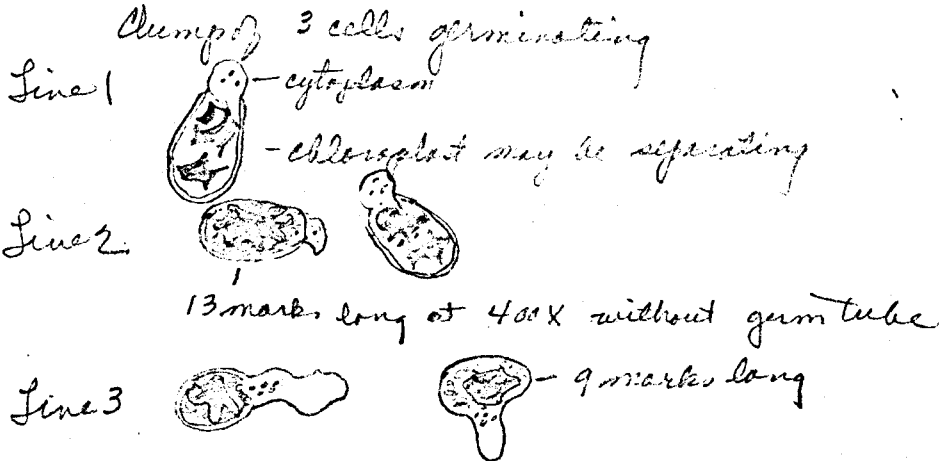 Clump of 3 cells germinating
Line 1
- cytoplasm
- chloroplast may be separating
Line 2
13 marks long at 400X without germ tube
Line 3
- 9 marks long